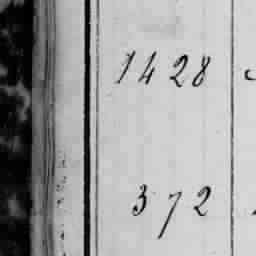 1428
372